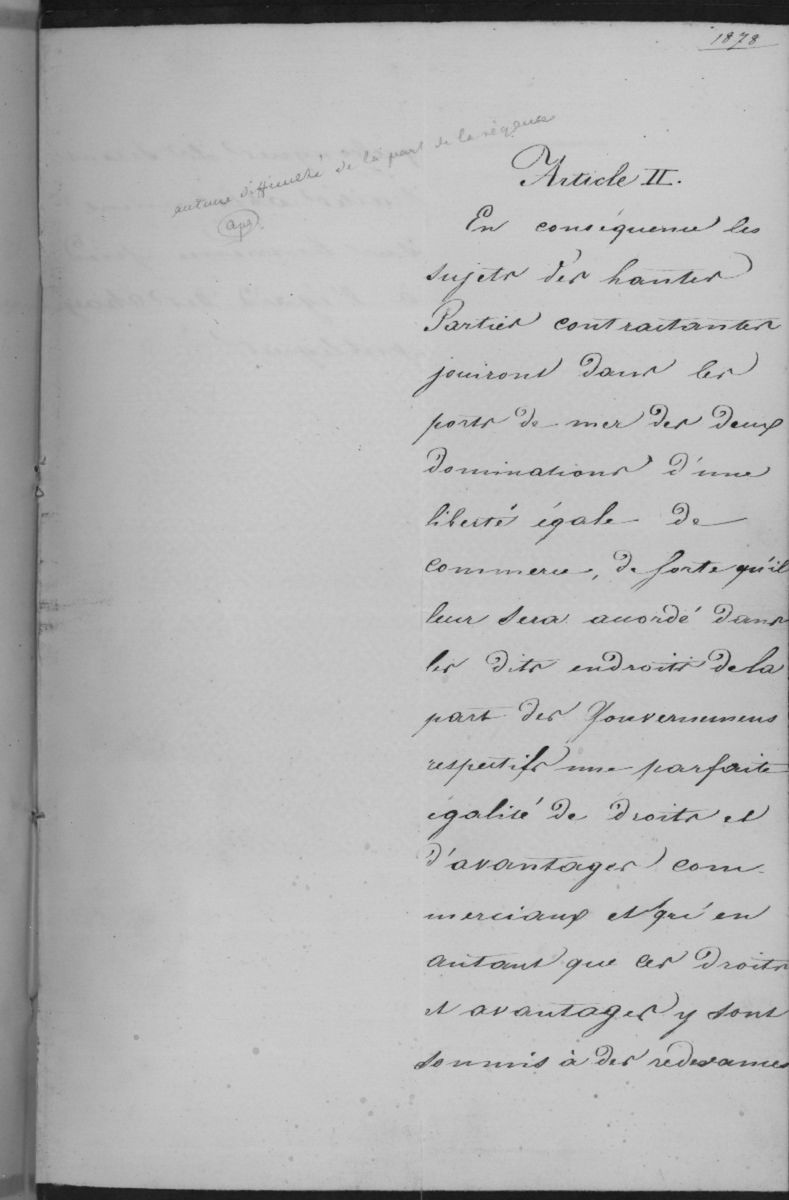 1878
aucune difficulté de la part de la régence
aps
Article II.
En conséquence les
sujets des hautes
Parties contractantes
jouiront dans les
ports de mer des deux
dominations d'une
liberté égale de
commerce, de sorte qu'il
leur sera accordé dans
les dits endroits de la
part des Gouvernemens
respectifs une parfaite
égalité de droits et
d'avantages com-
merciaux et qu'en
autant que ces droits
et avantages y sont
soumis à des redevances